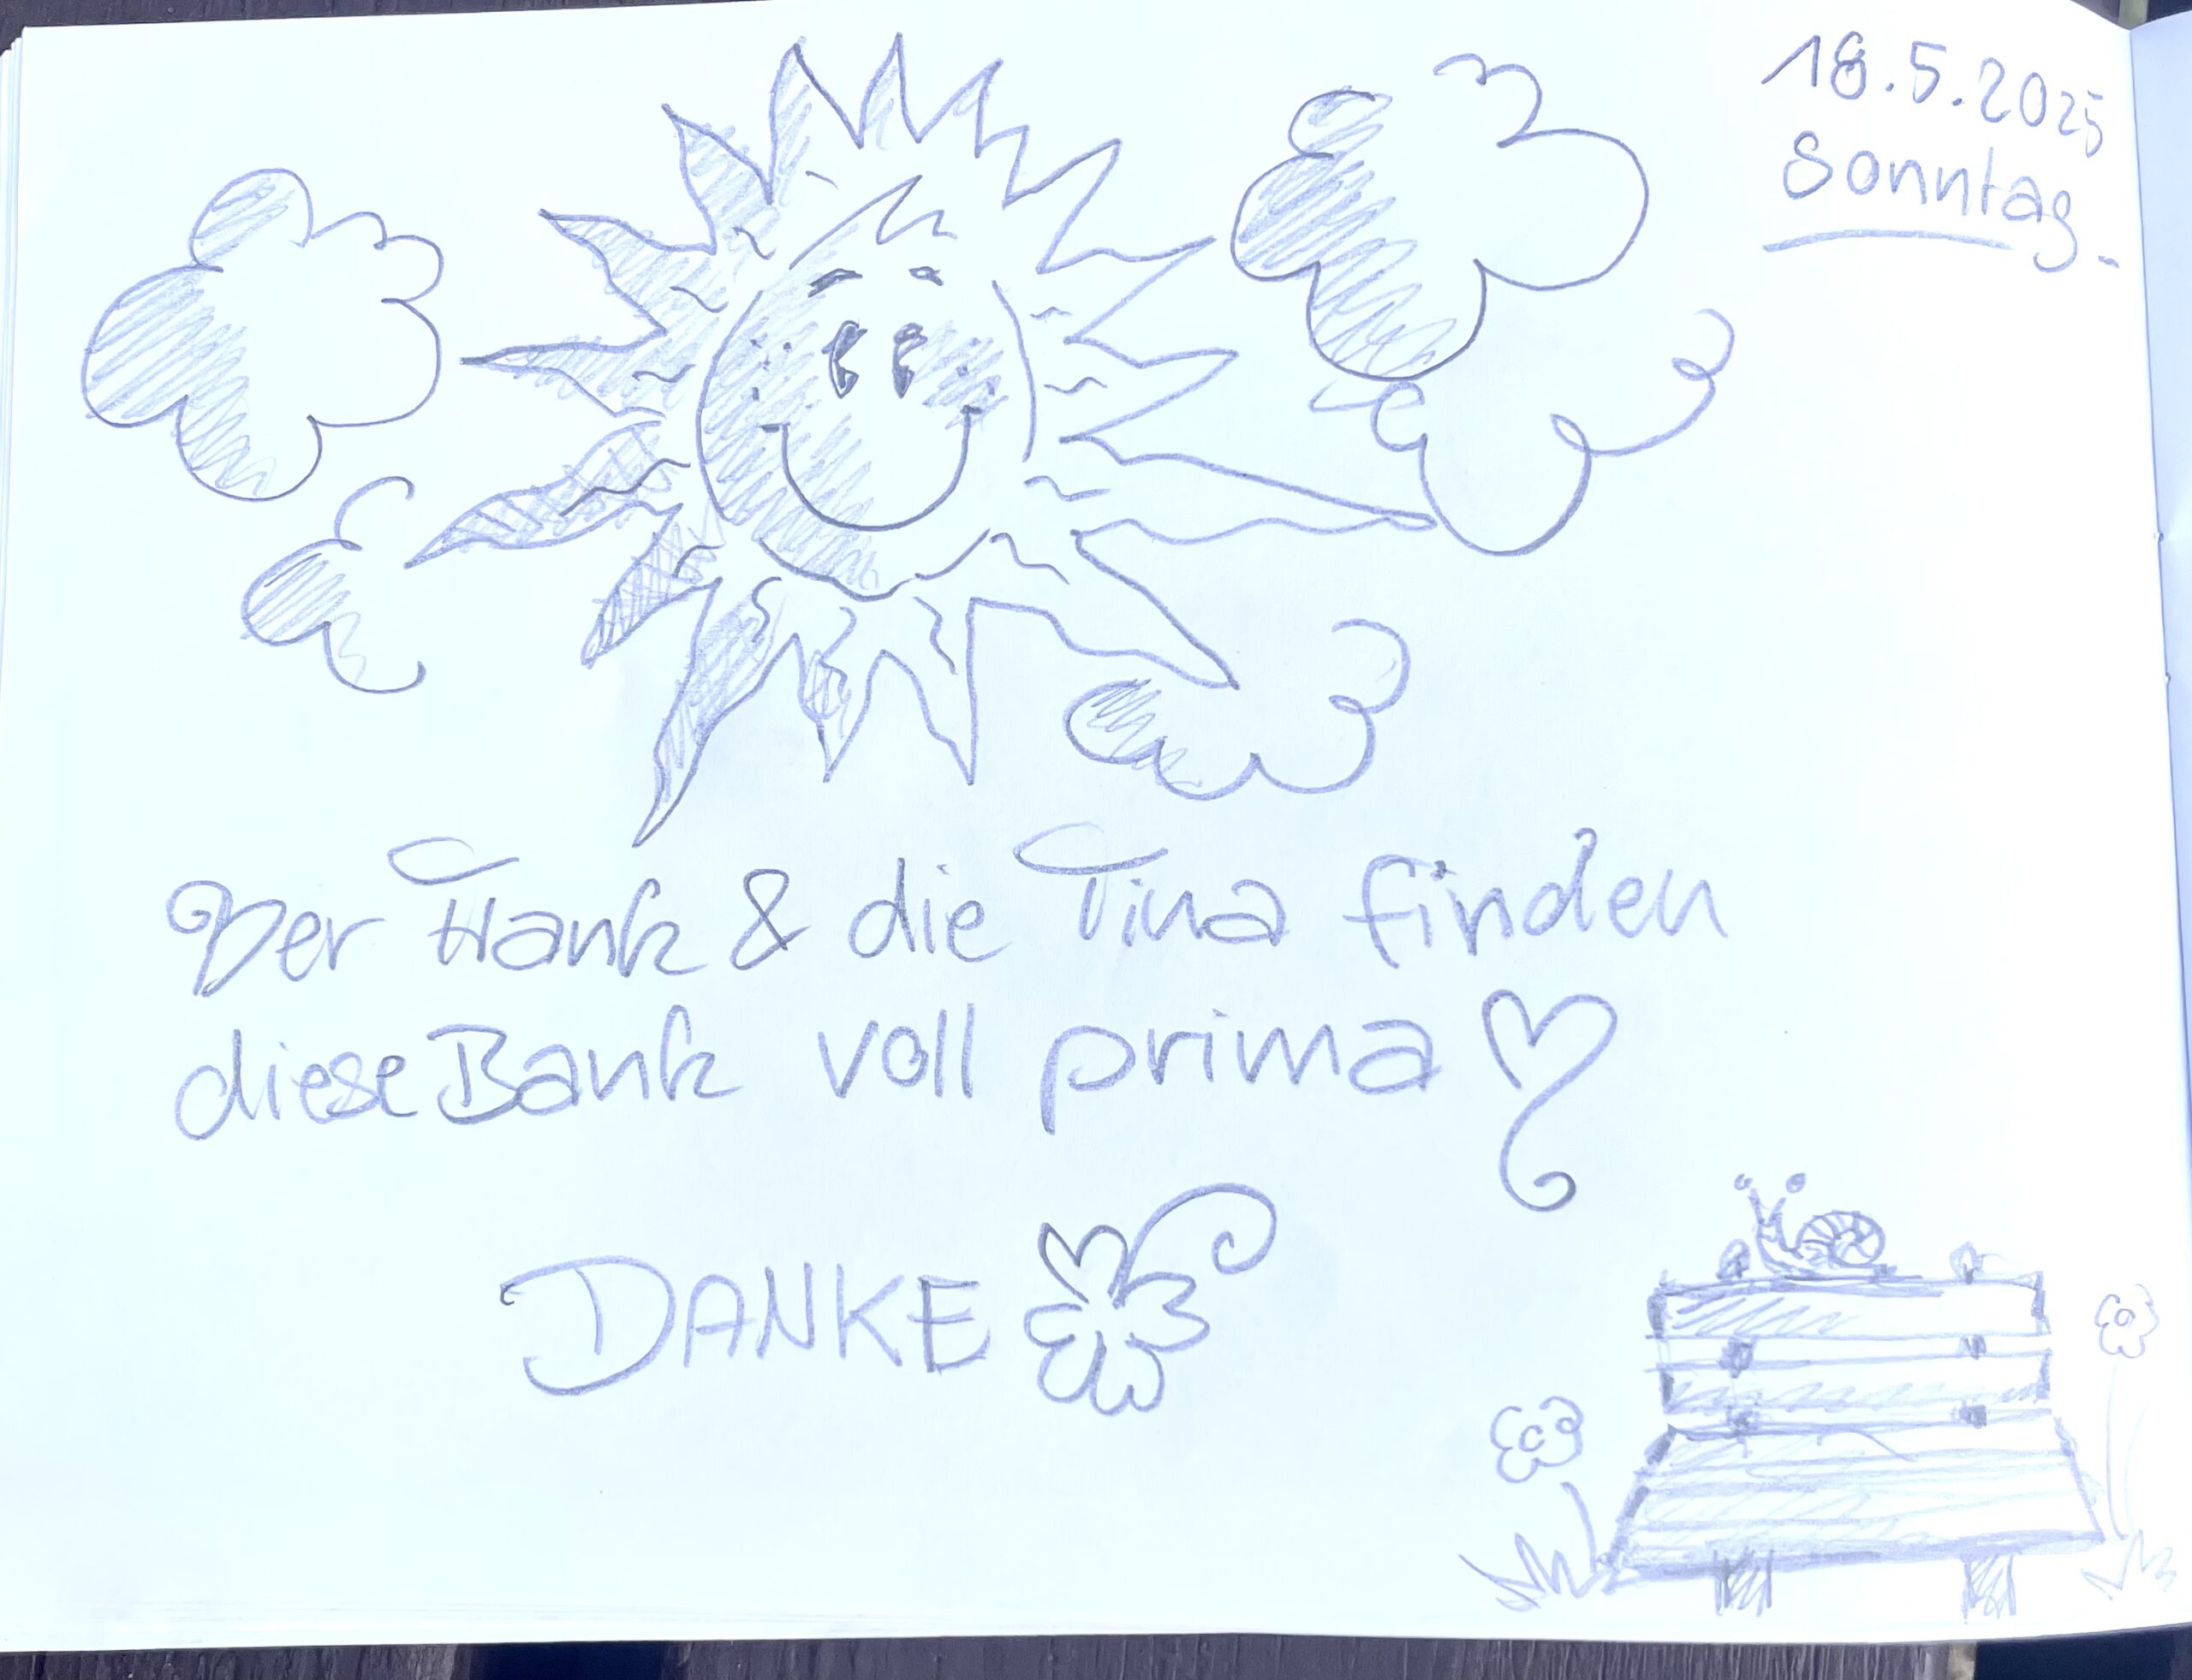 18.5.2025
Sonntag.
Der Hank & die Tina finden
diese Bank voll prima
DANKE